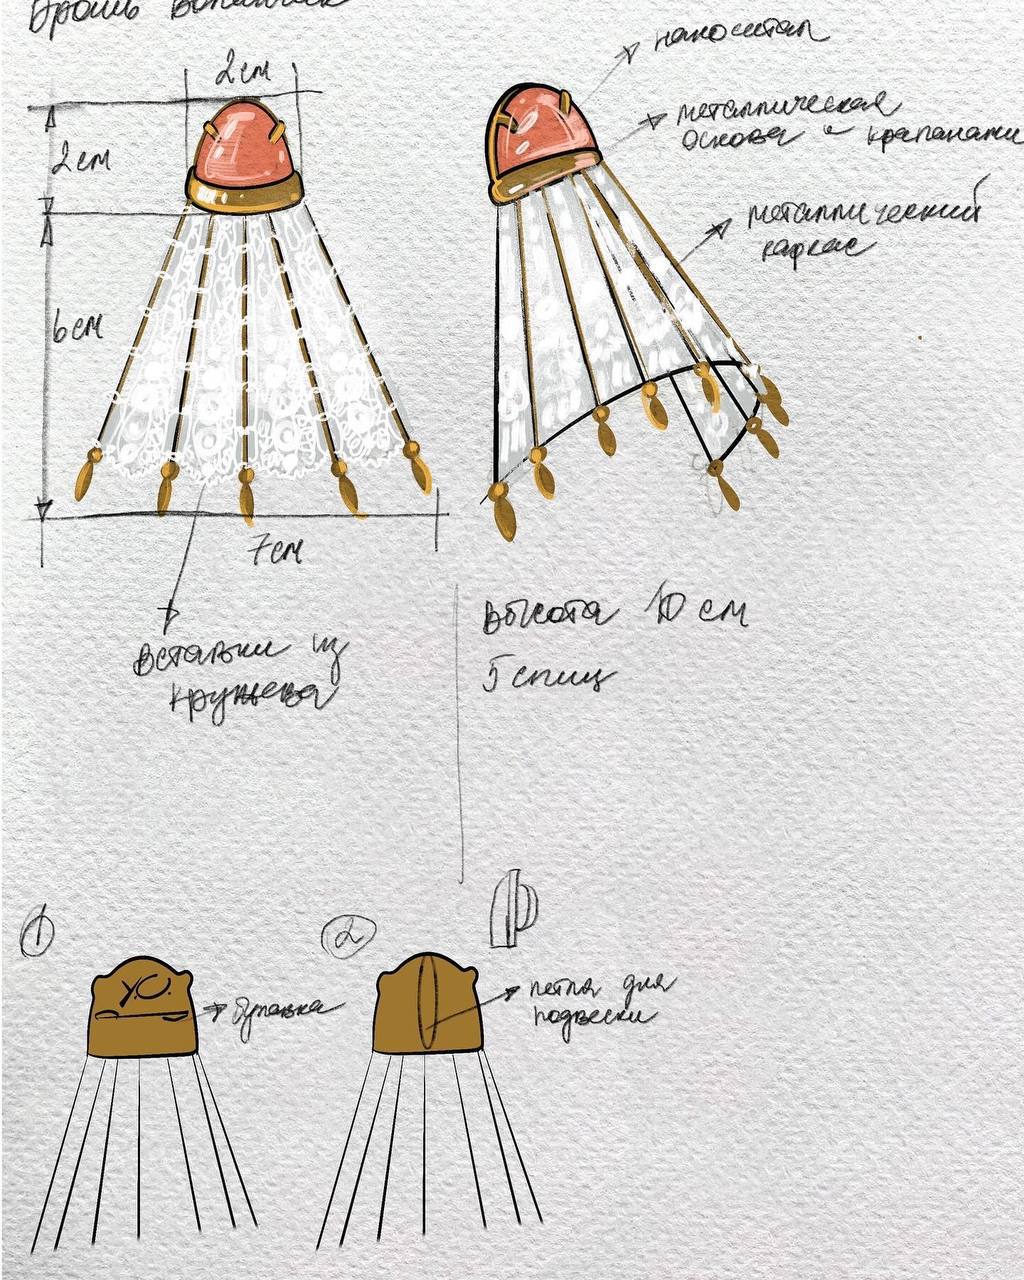 Брошь Воланчик
2см
2см
6см
7см
наноситал
металлическая
основа с крапанами
металлический
каркас
вставки из
кружева
высота 10 см
5 спиц
1
У.О.
булавка
2
петля для
подвески